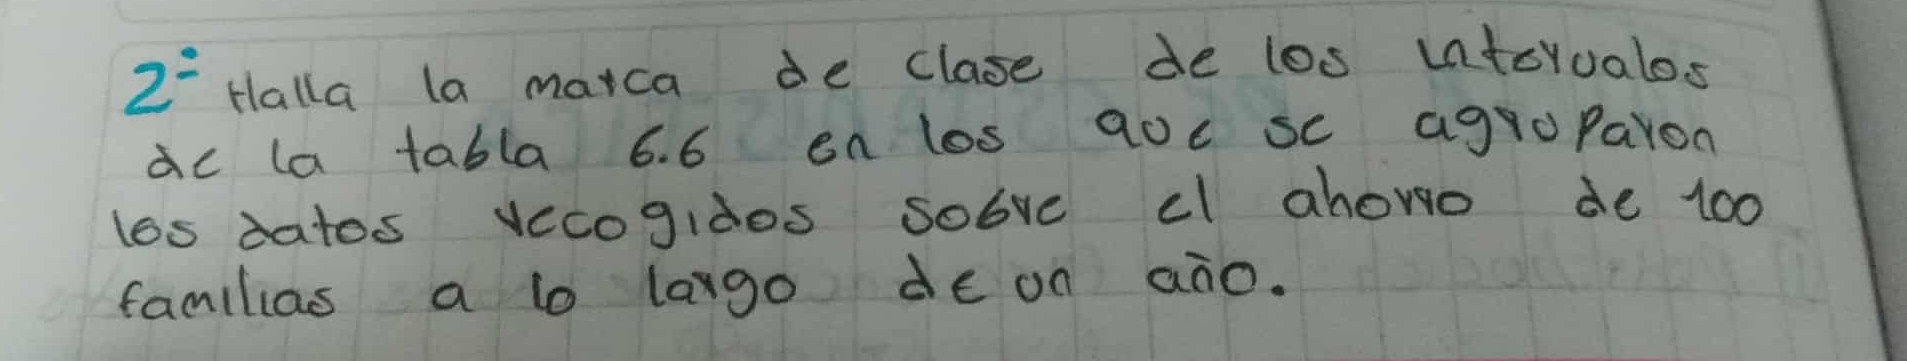 2÷ Halla la marca de clase de los intervalos
de la tabla 6.6 en los que se agruparon
los datos recogidos sobre el ahorro de 100
familias a lo largo de un año.